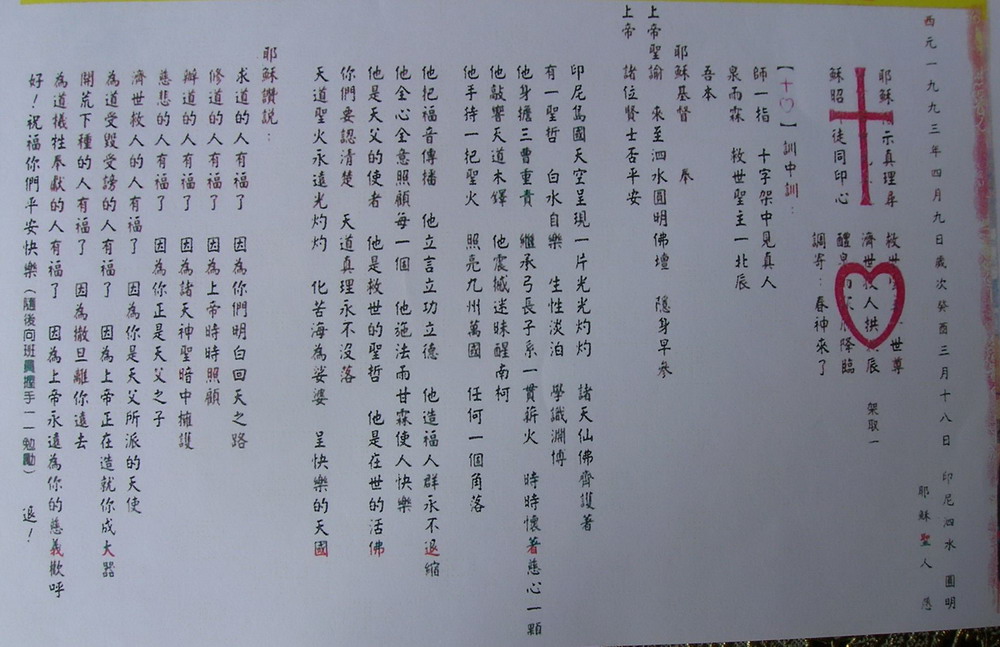 西元一九九三年四月九日歲次癸酉三月十八日 印尼泗水 圓明
耶穌聖人 慈
耶穌 示真理尋 救世 世尊
濟世 人拱 辰 架取一
穌昭 徒同印心 醴泉 降臨
調寄：春神來了
【十♡】訓中訓：
師一指 十字架中見真人
泉雨霖 救世聖主一北辰
吾本
耶穌基督 奉
上帝聖諭 來至泗水圓明佛壇 隱身早參
上帝 諸位賢士否平安
印尼島國天空呈現一片光光灼灼 諸天仙佛齊護著
有一聖哲 白水自樂 生性淡泊 學識淵博
他身擔三曹重責 繼承弓長子系一貫薪火 時時懷著慈心一顆
他敲響天道木鐸 他震撼迷昧醒南柯
他手待一把聖火 照亮九州萬國 任何一個角落
他把福音傳播 他立言立功立德 他造福人群永不退縮
他全心全意照顧每一個 他施法雨甘霖使人快樂
他是天父的使者 他是救世的聖哲 他是在世的活佛
你們要認清楚 天道真理永不沒落
天道聖火永遠光灼灼 化苦海為娑婆 呈快樂的天國
耶穌讚說：
求道的人有福了 因為你們明白回天之路
修道的人有福了 因為上帝時時照顧
辦道的人有福了 因為諸天神聖暗中擁護
慈悲的人有福了 因為你正是天父之子
濟世救人的人有福了 因為你是天父所派的天使
為道受毀受謗的人有福了 因為上帝正在造就你成大器
開荒下種的人有福了 因為撒旦離你遠去
為道犧牲奉獻的人有福了 因為上帝永遠為你的慈義歡呼
好！祝福你們平安快樂（隨後向班員握手一一勉勵） 退！